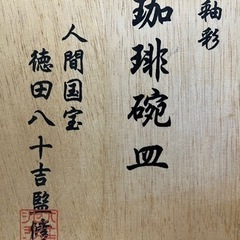 釉彩
珈琲碗皿
人間国宝
徳田八十吉監修